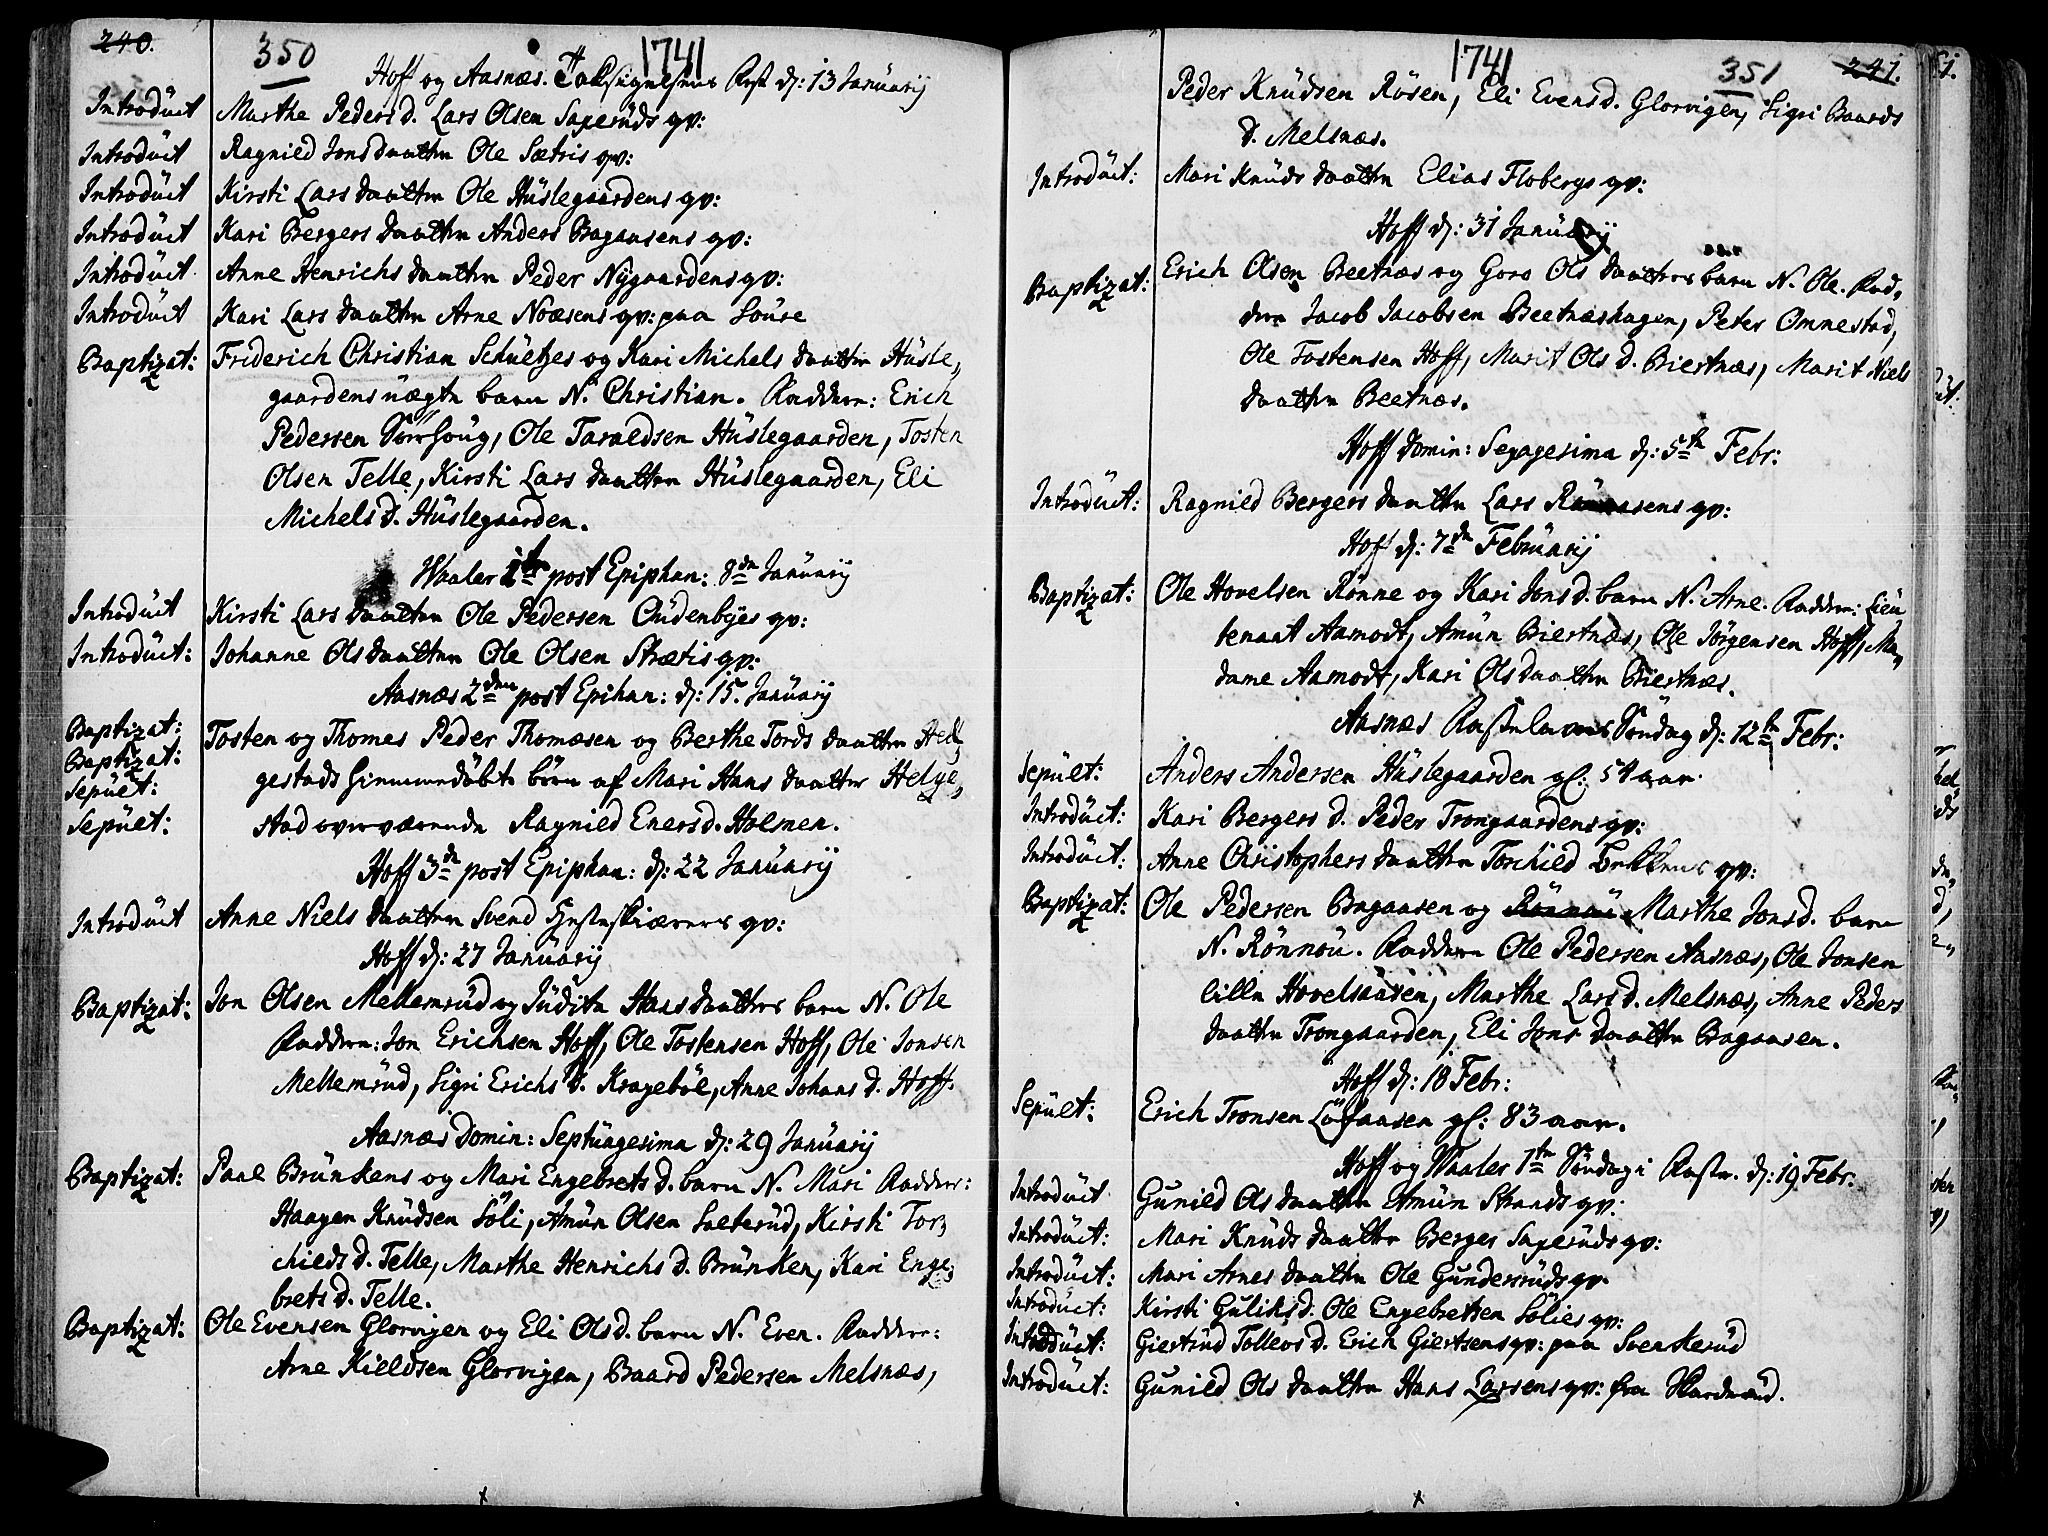 240.
350
1741
Hoff og Aasnæs. Taksigelsens Fest d: 13 Januarij
Introduit Marthe Peders d. Lars Olsen Sagerüds qv:
Introduit Ragnild Jons daatter Ole Sætris qv:
Introduit Kirsti Lars daatter Ole Hüslegaardens qv:
Introduit Kari Bergers daatter Anders Bagaasens qv:
Introduit Anne Henrichs daatter Peder Nÿgaardens qv:
Introduit Kari Lars daatter Arne Noæsens qv: paa
Baptizat: Friderich Christian Schultzes og Kari Michels daatter Hüsle,
gaardens uægte barn N. Christian. Faddere: Erich
Pedersen Sörhoug, Ole Taraldsen Hüslegaarden, Tosten
Olsen Telle, Kirsti Lars daatter Hüslegaarden, Eli
Michels d. Hüslegaarden.
Waaler 1te post Epiphan: 8de Januarij
Introduit Kirsti Lars daatter Ole Pedersen Oudenbÿes qv:
Introduit: Johanne Ols daatter Ole Olsen Strætis qv:
Aasnæs 2den post Epihan: d: 15. Januarij
Baptizat: Tosten og Thomes Peder Thomæsen og Berthe Tords daatter Hel,
Baptizat: gestads hiemmedöbte börn af Mari Hans daatter Helge,
Sepult:
Sepult: stad overværende Ragnild Eners d. Holmen.
Hoff 3de post Epiphan: d: 22 Januarij
Introduit Anne Niels daatter Svend Hesteskiærers qv:
Hoff d: 27 Januarij
Baptizat: Jon Olsen Mellemrud og Judita Hans daatters barn N. Ole
Faddere: Jon Erichsen Hoff, Ole Tostensen Hoff, Ole Jonsen
Mellemrud, Sigri Erichs d. Krageböl, Anne Johans d. Hoff.
Aasnæs Domin: Septuagesima d: 29 Januarij
Baptizat: Paal Brünkens og Mari Engebrets d. barn N. Mari Faddere:
Haagen Knudsen Söli, Amün Olsen Sæterüd, Kirsti Tor,
childs d. Telle, Marthe Henrichs d. Brünken, Kari Enge,
brets d. Telle.
Baptizat: Ole Evensen Glorvigen og Eli Ols d. barn N. Even. Faddere:
Arne Kieldsen Glorvigen, Baard Pedersen Melsnæs,
1741
351
241.
Peder Knudsen Rösen, Eli Evens d. Glorvigen, Sigri Baards
d. Melsnæs.
Introduit: Mari Knüds daatter Elias Flobergs qv:
Hoff d: 31 Januarij
Baptizat: Erich Olsen Beetnæs og Goro Ols daatters barn N. Ole. Fad,
dere Jacob Jacobsen Beetnæshagen, Peter Omnestad,
Ole Tostensen Hoff, Marit Ols d. Biertnæs, Marit Niels
daatter Beetnæs.
Hoff Domin: Sexagesima d: 5te Febr:
Introduit: Ragnild Bergers daatter Lars qv:
Hoff d: 7de Februarij
Baptizat: Ole Hovelsen Rönne og Kari Jons d. barn N. Arne. Faddere: Lieu
tenant Aamodt, Amün Biertnæs, Ole Jörgensen Hoff, Ma,
dame Aamodt, Kari Ols daatter Biertnæs.
Aasnæs Fastelavns Söndag d: 12te Febr:
Sepult: Anders Andersen Hüslegaarden gl: 54 aar.
Introduit: Kari Bergers d. Peder Trongaardens qv:
Introduit: Anne Christophers daatter Torchild qv:
Baptizat: Ole Pedersen Bagaasen og Marthe Jons d. barn
N. Rönnou. Faddere Ole Pedersen Aasnæs, Ole Jonsen
lille Hovelsaasen, Marthe Lars d. Melsnæs, Anne Peders
daatter Trongaarden, Eli Jons daatter Bagaasen.
Hoff d: 18 Febr:
Sepult: Erich Tronsen Löfaasen gl: 83 aar.
Hoff og Waaler 1te Söndag i Faste. d: 19 Febr:
Introduit Gunild Ols daatter Amün Strands qv:
Introduit: Mari Knüds daatter Berger Sagerüds qv:
Introduit: Mari Arnes daatter Ole Gundersrüds qv
Introduit: Kirsti Guliks d. Ole Engebretsen Sölies qv:
Introduit: Giertrud Tollevs d. Erich Giertsens qv: paa Svenkerüd
Introduit: Gunild Ols daatter Hans Larsens qv: fra